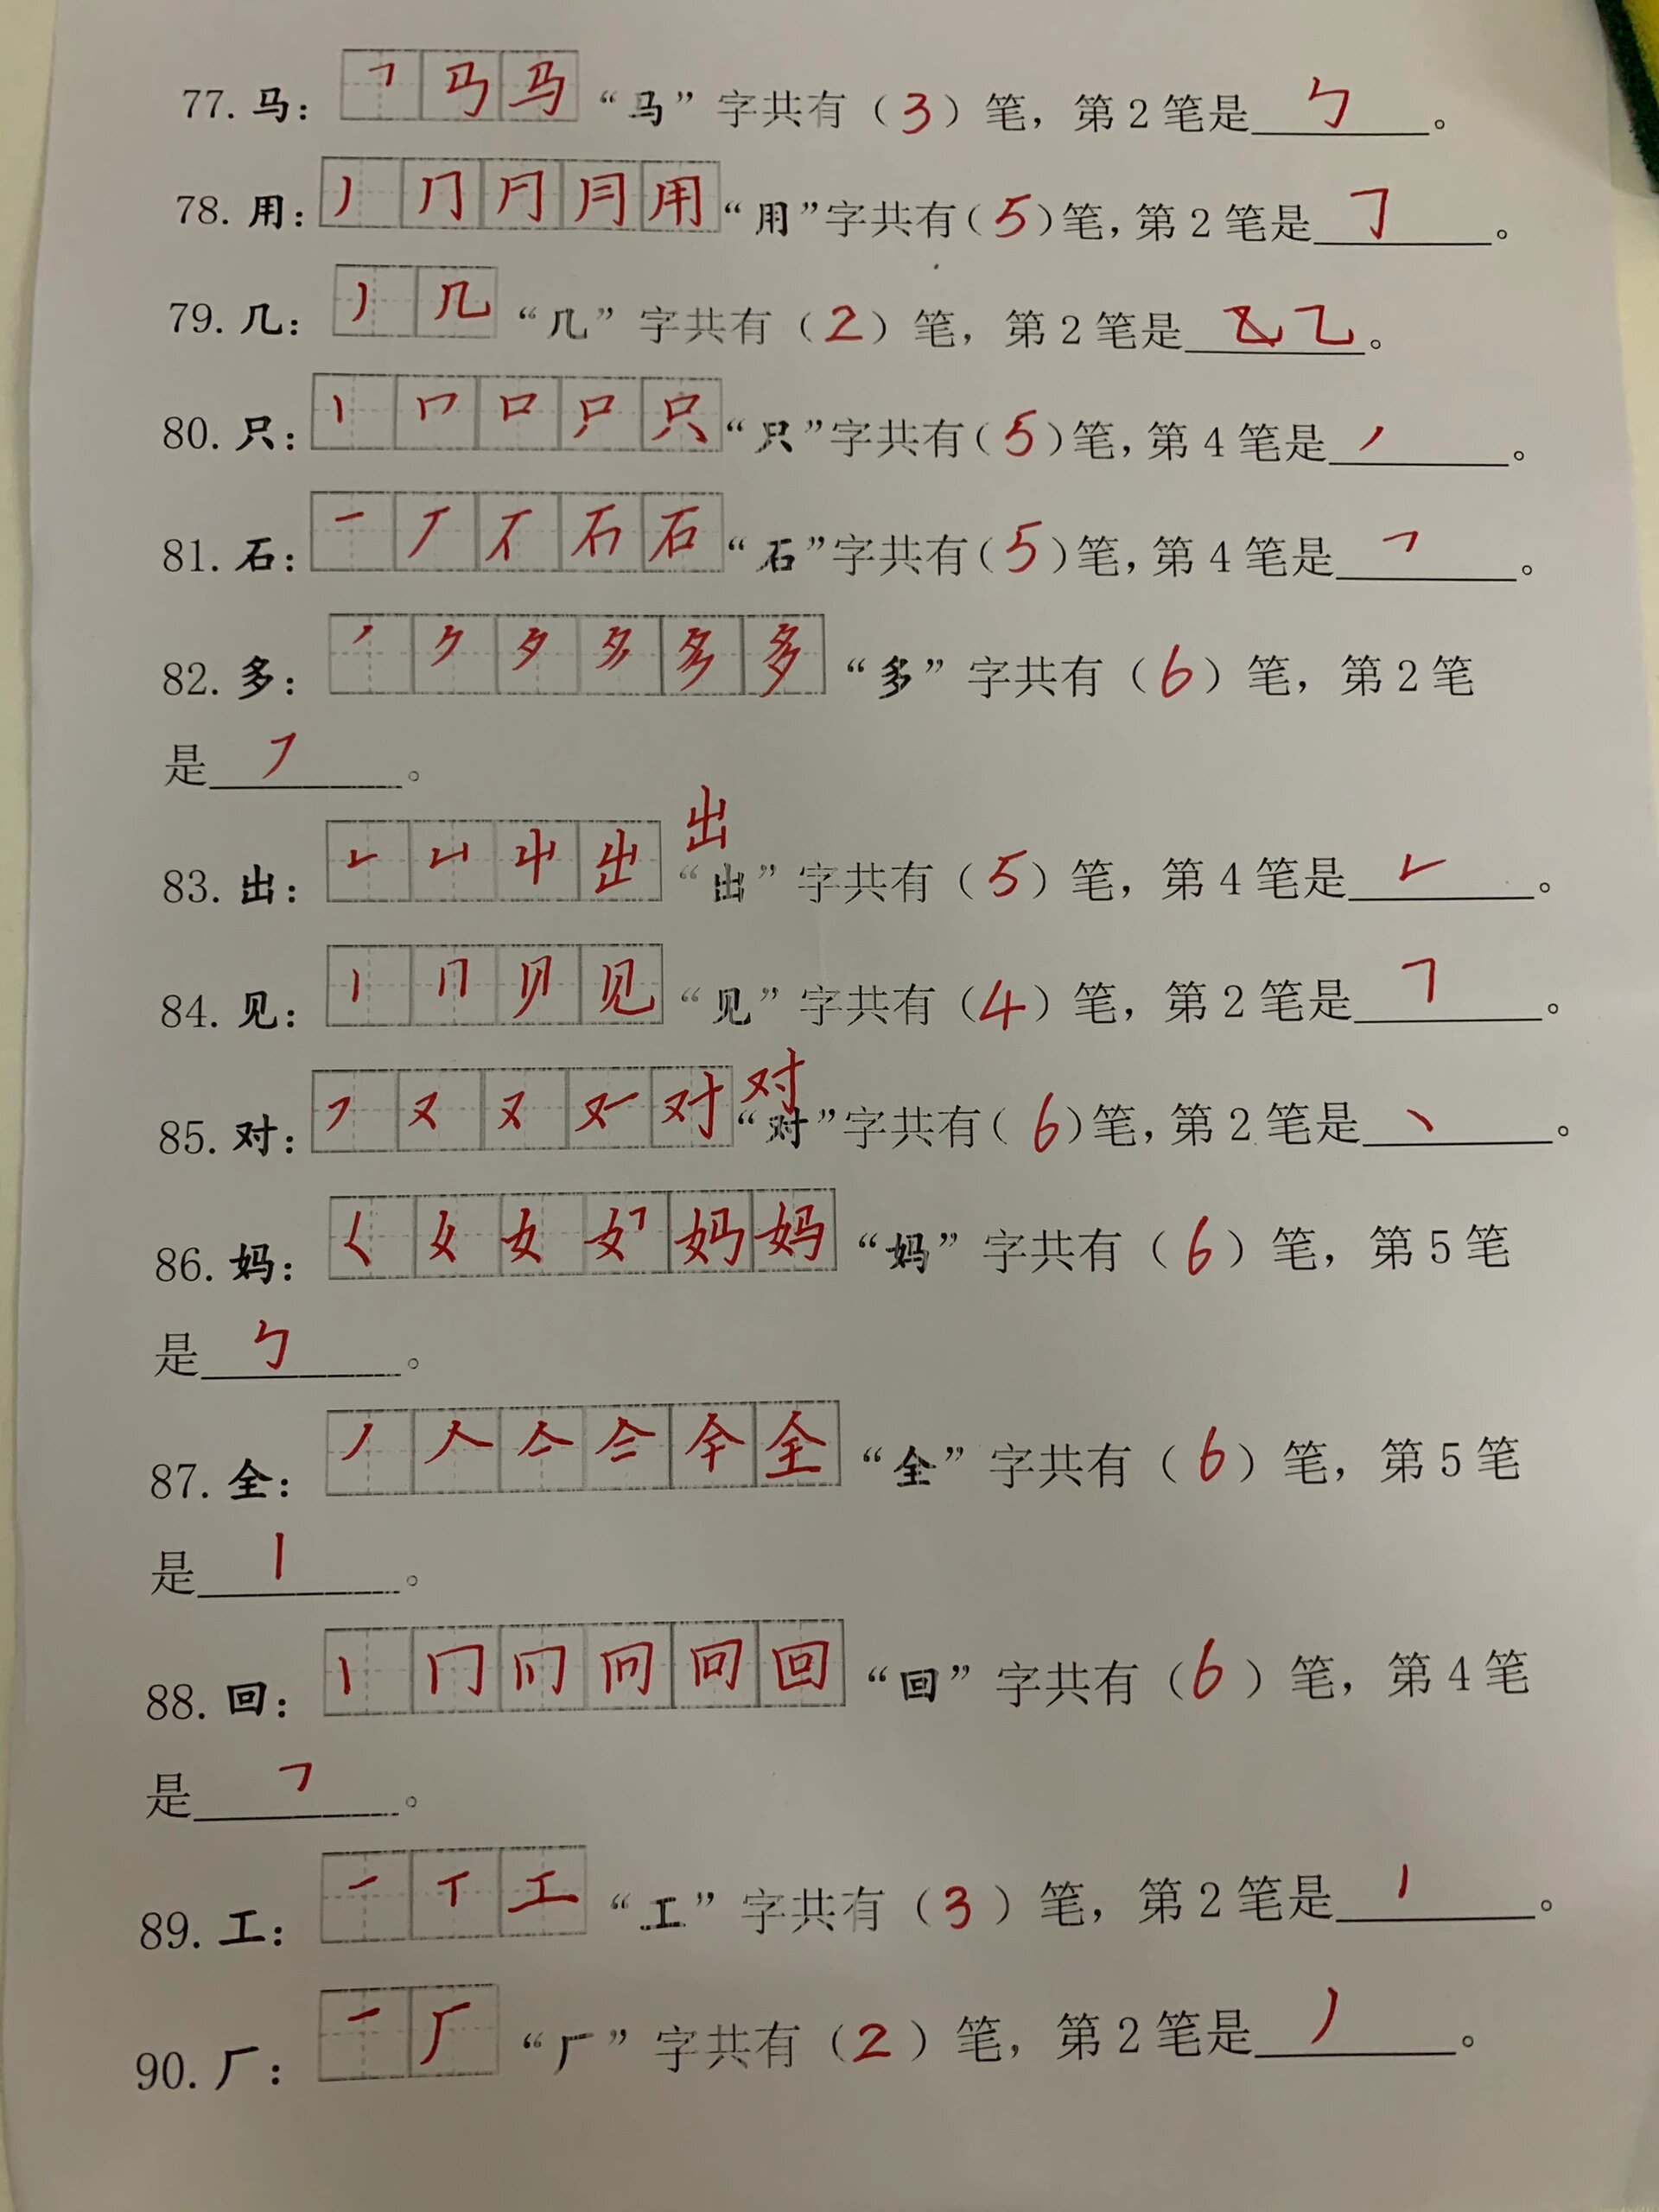 77. 马： ㇕ 马 马 “马” 字共有（3）笔，第 2 笔是 ㄅ 。
78. 用： 丿 ⺆ 月 用 “用”字共有（5）笔，第 2 笔是 ㇆ 。
79. 几： 丿 几 “几” 字共有（2）笔，第 2 笔是 ⺄ 。
80. 只： 丨 口 只 “只”字共有（5）笔，第 4 笔是 丿 。
81. 石： 一 丆 石 石 “石”字共有（5）笔，第 4 笔是 ㇕ 。
82. 多： 丿 ク 夕 多 多 “多” 字共有（6）笔，第 2 笔
是 ㇇ 。
出
83. 出： ㇗ 凵 屮 出 “出” 字共有（5）笔，第 4 笔是 ㇗ 。
84. 见： 丨 冂 贝 见 “见” 字共有（4）笔，第 2 笔是 ㇕ 。
对
85. 对： ㇇ 又 又 对 “对”字共有（6）笔，第 2 笔是 丶 。
86. 妈： ㇛ 女 女 妈 妈 “妈” 字共有（6）笔，第 5 笔
是 ㄅ 。
87. 全： 丿 人 亼 仐 全 “全” 字共有（6）笔，第 5 笔
是 丨 。
88. 回： 丨 冂 回 回 “回” 字共有（6）笔，第 4 笔
是 ㇕ 。
89. 工： 一 丅 工 “工” 字共有（3）笔，第 2 笔是 丨 。
90. 厂： 一 厂 “厂” 字共有（2）笔，第 2 笔是 丿 。